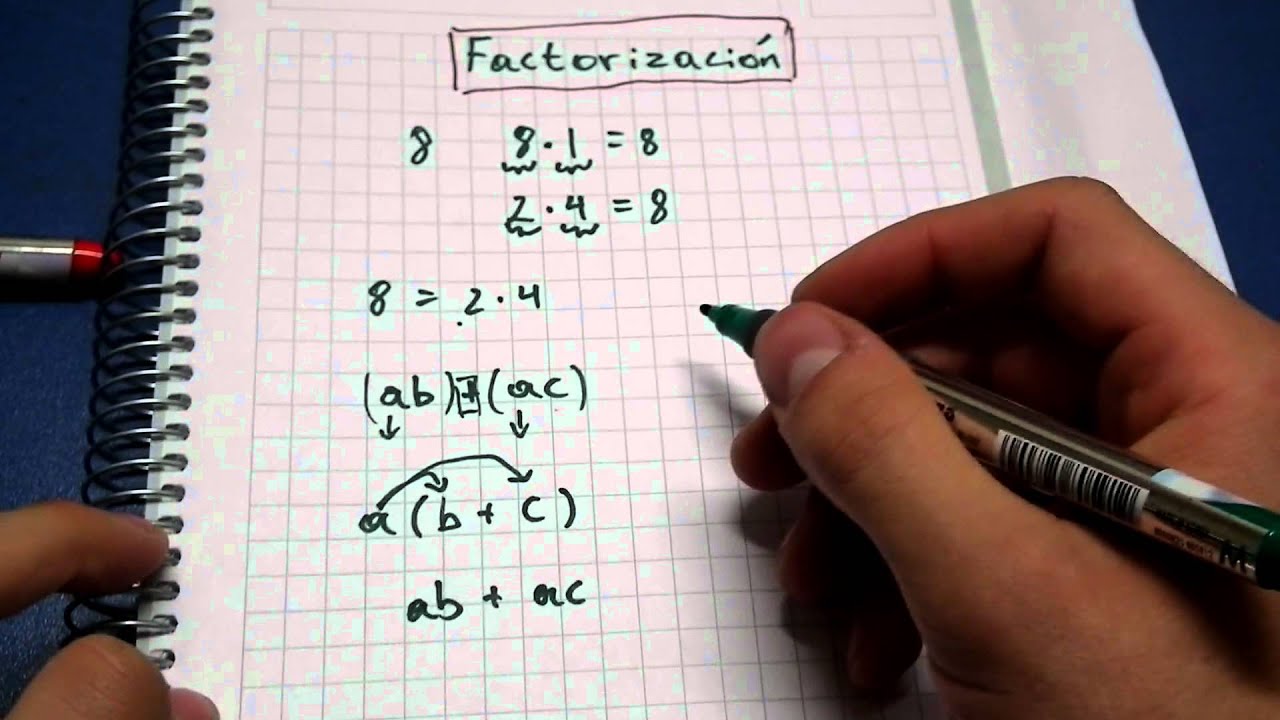 Factorización
8 8 · 1 = 8
2 · 4 = 8
8 = 2 · 4
(ab) + (ac)
a (b + c)
ab + ac
M